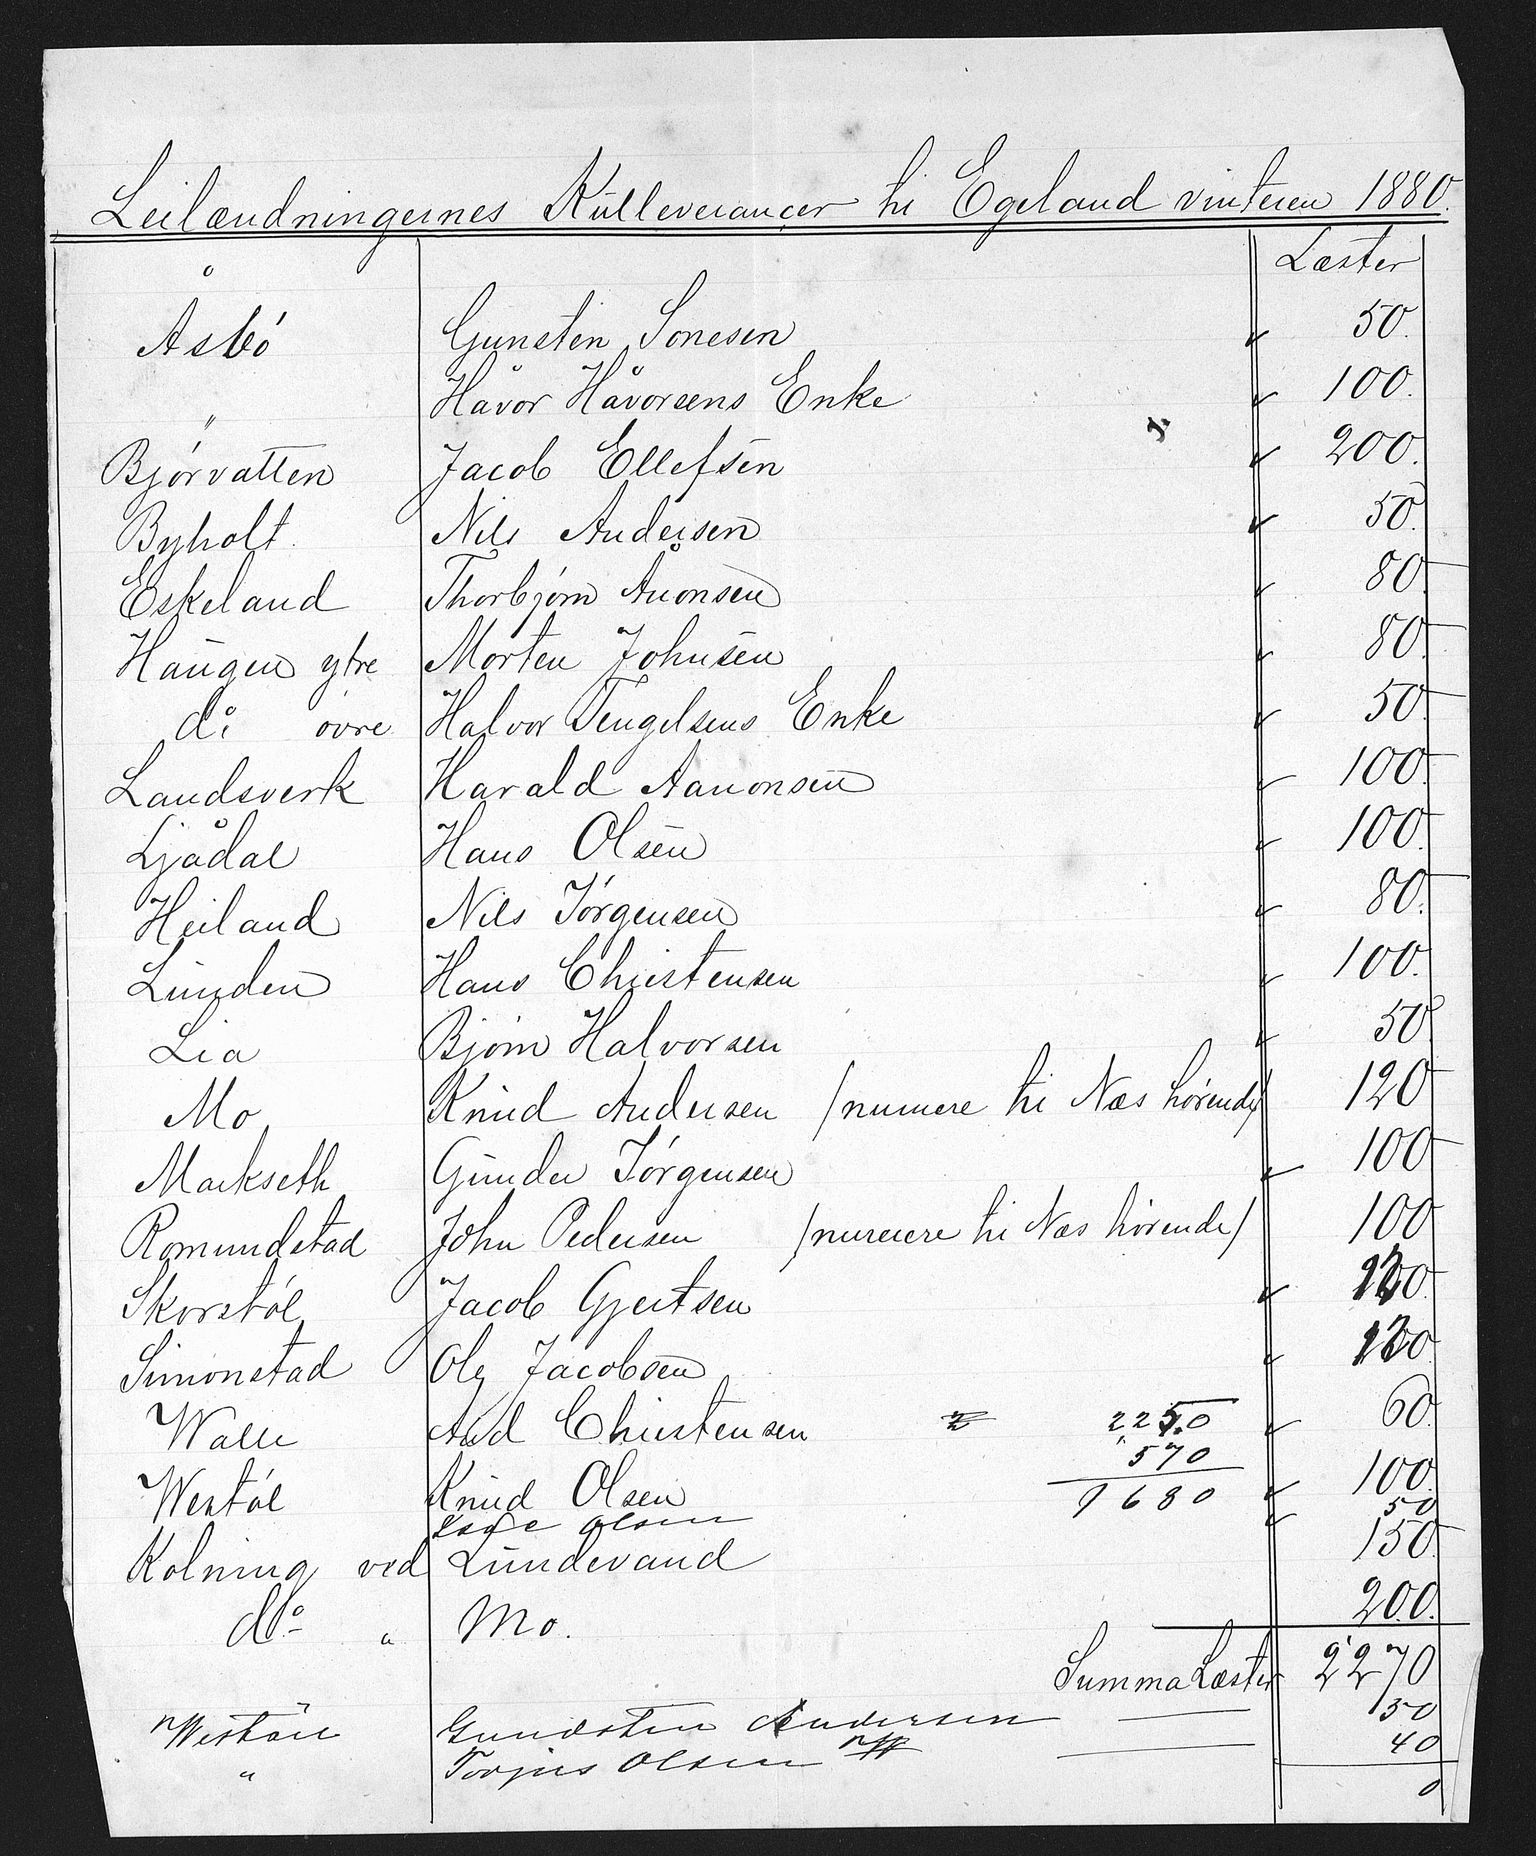 Leilændningernes Kulleverancer til Egeland vinteren 1880.
Læster
Åsbó Gunsten Sonesen 50.
" Håvor Håvorsens Enke 100.
Bjørvatten Jacob Ellefsen 200.
Byholt Nils Andersen 50.
Eskeland Thorbjørn Ånonsen 80
Haugen ytre Morten Johnsen 80
do øvre Halvor Tengelsens Enke 50
Landsverk Harald Aanonsen 100
Ljådal Hans Olsen 100.
Heiland Nils Jörgensen 80.
Lunden Hans Christensen 100.
Lia Björn Halvorsen 50
Mo Knud Andersen /numere til Næs hörende/ 120
Markseth Gunder Jörgensen 100
Romundstad John Pedersen /numere til Næs hörende/ 100
Skorstöl Jacob Gjertsen
Simonstad Ole Jacobsen
Walle And Christensen 2250 60.
570
Westöl Knud Olsen 1680 100.
Olsen 50
Kolning ved Lundevand 150
do " Mo. 200.
Summa Læster 2270
Westöil Gundsten Andersen 150
" Torjus Olsen 40
0